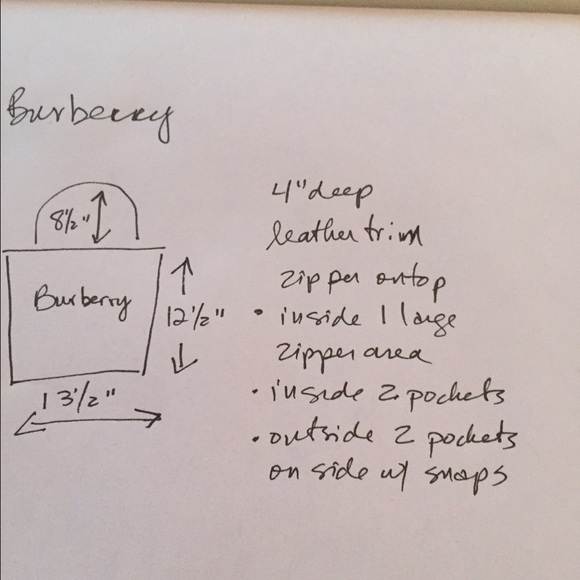 Burberry
8½"
Burberry
12½"
13½"
4" deep
leather trim
zipper on top
• inside 1 large
zipper area
• inside 2 pockets
• outside 2 pockets
on side w/ snaps